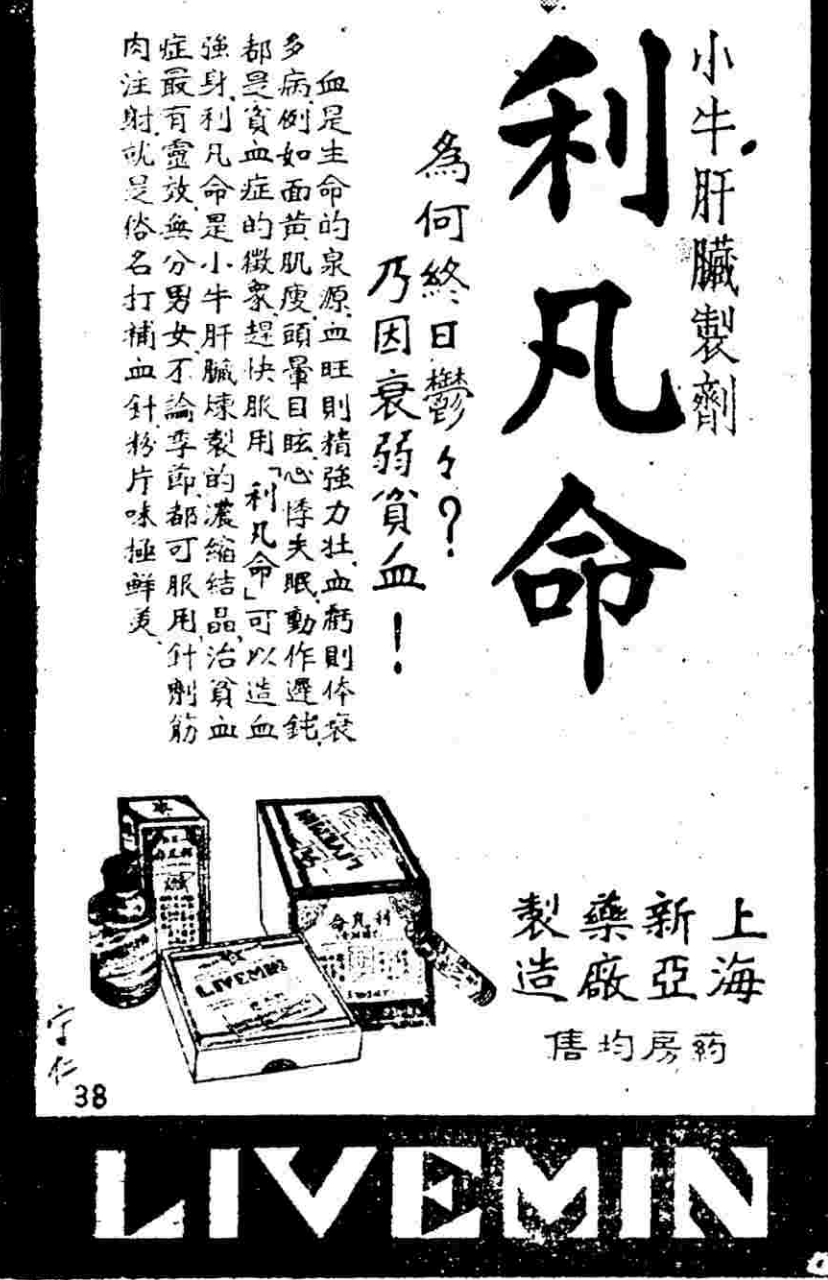 小牛肝臟製劑
利凡命
為何終日鬱々？
乃因衰弱貧血！
血是生命的泉源、血旺則精強力壯、血虧則体衰
多病、例如面黃肌瘦、頭暈目眩、心悸失眠、動作遲鈍、
都是貧血症的徵象、趕快服用「利凡命」可以造血
強身、利凡命是小牛肝臟煉製的濃縮結晶、治貧血
症最有靈效、無分男女、不論季節、都可服用、針劑筋
肉注射、就是俗名打補血針、粉片味極鮮美、
上海
新亞
藥廠
製造
药房均售
LIVEMIN
利凡命
LIVEMIN
宇仁
38
LIVEMIN